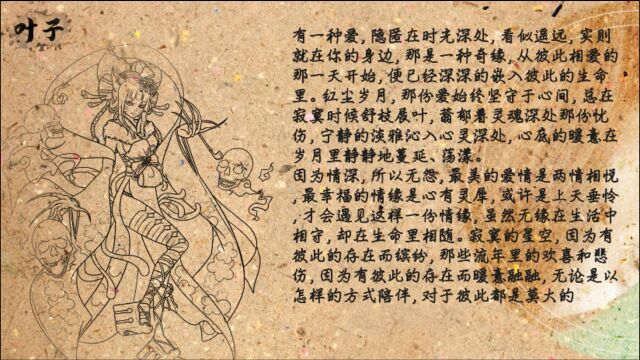 叶子
有一种爱,隐匿在时光深处,看似遥远,实则
就在你的身边,那是一种奇缘,从彼此相爱的
那一天开始,便已经深深的嵌入彼此的生命
里。红尘岁月,那份爱始终坚守于心间,总在
寂寞时候舒枝展叶,蓊郁着灵魂深处那份忧
伤,宁静的淡雅沁入心灵深处,心底的暖意在
岁月里静静地蔓延、荡漾。
因为情深,所以无怨,最美的爱情是两情相悦
,最幸福的情缘是心有灵犀,或许是上天垂怜
,才会遇见这样一份情缘,虽然无缘在生活中
相守,却在生命里相随。寂寞的星空,因为有
彼此的存在而缤纷,那些流年里的欢喜和悲
伤,因为有彼此的存在而暖意融融,无论是以
怎样的方式陪伴,对于彼此都是莫大的